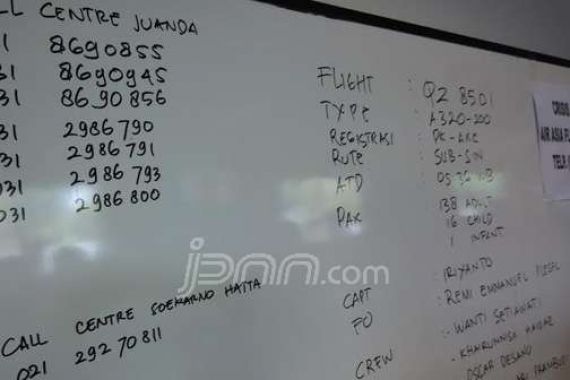 LL CENTRE JUANDA
31 8690855
31 8690945
31 8690856
031 2986790
031 2986791
031 2986793
031 2986800
CALL CENTRE SOEKARNO HATTA
021 29270811
FLIGHT : QZ 8501
TYPE : A320-200
REGISTRASI : PK-AXC
RUTE : SUB-SIN
ATD : 0536
PAX : 138 ADULT
16 CHILD
1 INFANT
CAPT : IRIYANTO
FO : REMI EMMANUEL
CREW : WANTI SETIAWATI
- KHAIRUNNISA HAIDAR
OSCAR DESANO
CRISIS
AIR ASIA
TELP
jpnn.com